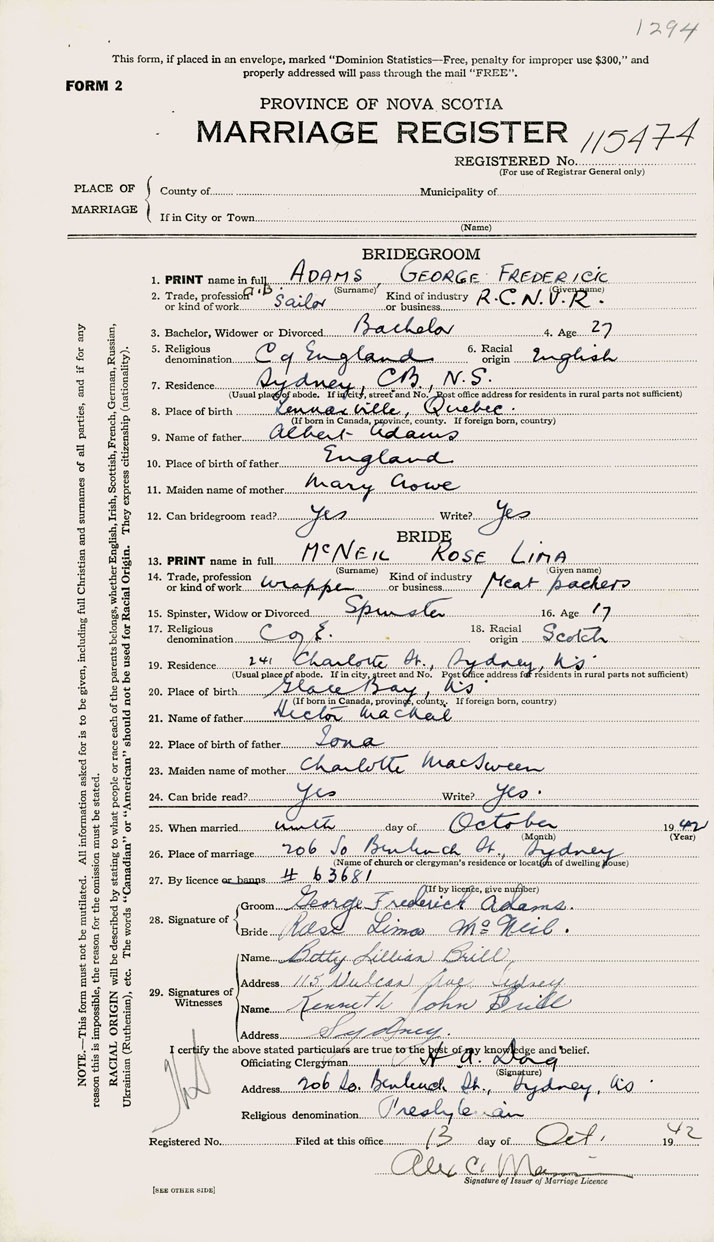 1294
This form, if placed in an envelope, marked "Dominion Statistics—Free, penalty for improper use $300," and
properly addressed will pass through the mail "FREE".
FORM 2
PROVINCE OF NOVA SCOTIA
MARRIAGE REGISTER 115474
REGISTERED No.
(For use of Registrar General only)
PLACE OF MARRIAGE
County of Municipality of
If in City or Town
(Name)
BRIDEGROOM
1. PRINT name in full ADAMS GEORGE FREDERICK
(Surname) (Given name)
2. Trade, profession or kind of work A.B. Sailor Kind of industry or business R.C.N.V.R.
3. Bachelor, Widower or Divorced Bachelor 4. Age 27
5. Religious denomination C of England 6. Racial origin English
7. Residence Sydney, C.B., N.S.
(Usual place of abode. If in city, street and No. Post office address for residents in rural parts not sufficient)
8. Place of birth Lennoxville, Quebec.
(If born in Canada, province, county. If foreign born, country)
9. Name of father Albert Adams
10. Place of birth of father England
11. Maiden name of mother Mary Crowe
12. Can bridegroom read? Yes Write? Yes
BRIDE
13. PRINT name in full McNEIL ROSE LIMA
(Surname) (Given name)
14. Trade, profession or kind of work Wrapper Kind of industry or business Meat packers
15. Spinster, Widow or Divorced Spinster 16. Age 17
17. Religious denomination C of E. 18. Racial origin Scotch
19. Residence 241 Charlotte St., Sydney, N.S.
(Usual place of abode. If in city, street and No. Post office address for residents in rural parts not sufficient)
20. Place of birth Glace Bay, N.S.
(If born in Canada, province, county. If foreign born, country)
21. Name of father Hector MacNeil
22. Place of birth of father Iona
23. Maiden name of mother Charlotte MacSween
24. Can bride read? Yes Write? Yes.
25. When married ninth day of October 1942
(Month) (Year)
26. Place of marriage 206 So Bentinck St., Sydney
(Name of church or clergyman's residence or location of dwelling house)
27. By licence or banns # 63681
(If by licence, give number)
28. Signature of
Groom George Frederick Adams.
Bride Rose Lima McNeil.
29. Signatures of Witnesses
Name Betty Lillian Brill
Address 115 Vulcan Ave Sydney
Name Kenneth John Brill
Address Sydney.
I certify the above stated particulars are true to the best of my knowledge and belief.
Officiating Clergyman A. A.
(Signature)
Address 206 So. Bentinck St., Sydney, N.S.
Religious denomination Presbyterian
Registered No. Filed at this office 13 day of Oct. 1942
Alex C.
Signature of Issuer of Marriage Licence
[SEE OTHER SIDE]
NOTE.—This form must not be mutilated. All information asked for is to be given, including full Christian and surnames of all parties, and if for any
reason this is impossible, the reason for the omission must be stated.
RACIAL ORIGIN will be described by stating to what people or race each of the parents belongs, whether English, Irish, Scottish, French, German, Russian,
Ukrainian (Ruthenian), etc. The words "Canadian" or "American" should not be used for Racial Origin. They express citizenship (nationality).